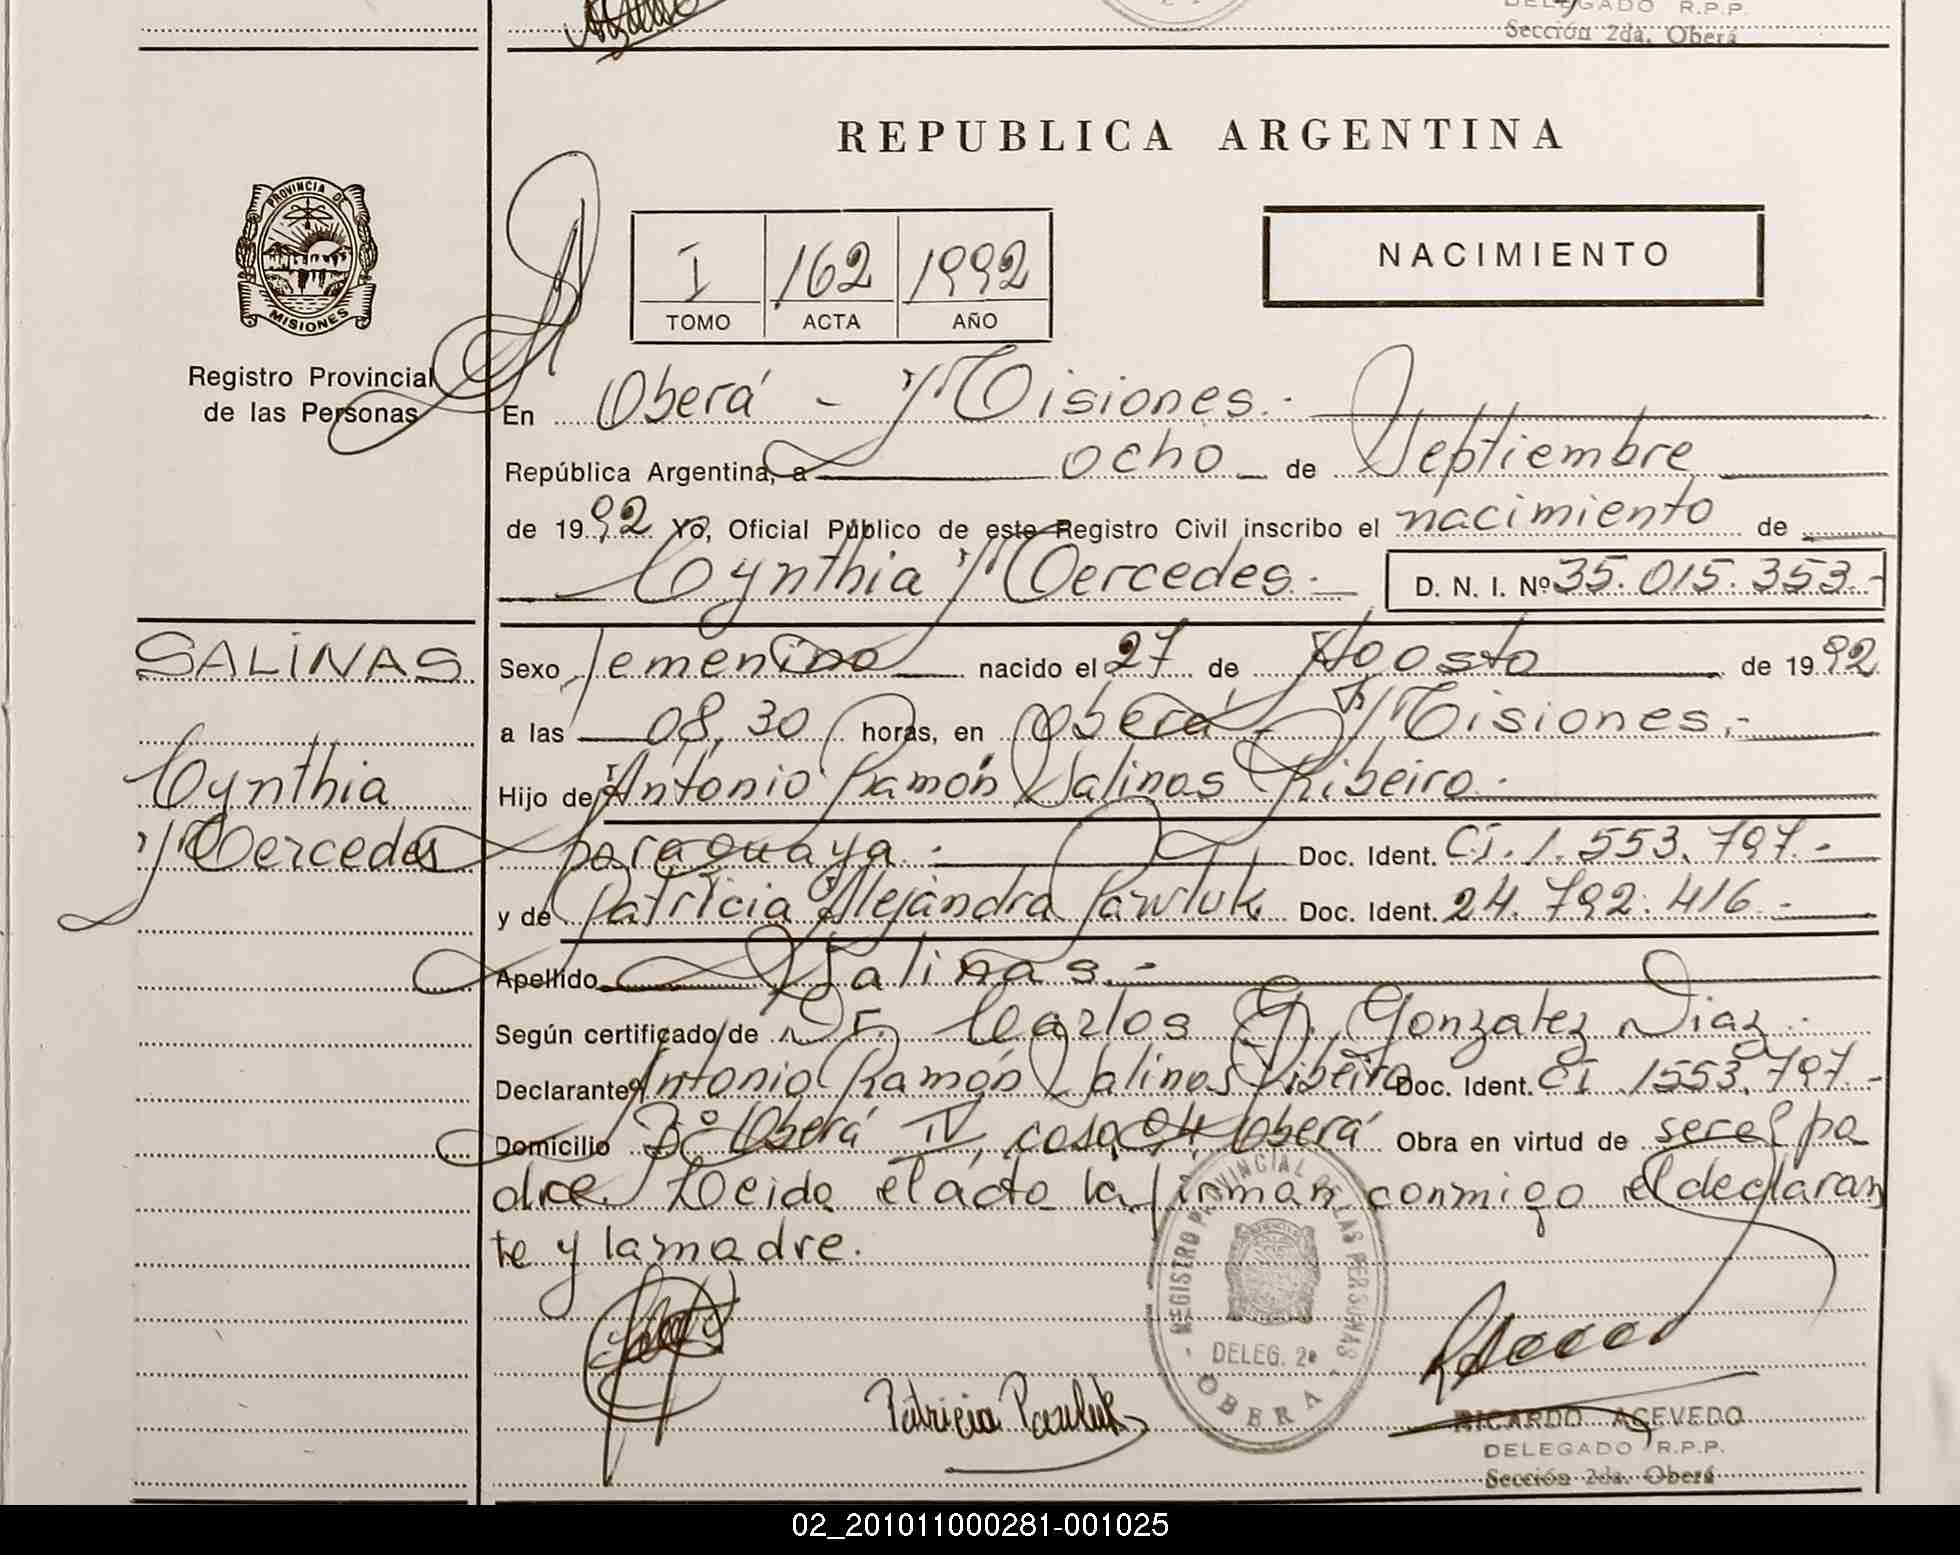 DELEGADO R.P.P.
Sección 2da. Oberá
REPUBLICA ARGENTINA
PROVINCIA DE
MISIONES
Registro Provincial
de las Personas
I 162 1992
TOMO ACTA AÑO
NACIMIENTO
En Oberá - Misiones.-
República Argentina, a ocho de Septiembre
de 1992 Yo, Oficial Público de este Registro Civil inscribo el nacimiento de
Cynthia Mercedes.- D. N. I. Nº 35.015.353.-
SALINAS
Cynthia
Mercedes
Sexo femenino nacido el 27 de Agosto de 1992
a las 08,30 horas, en Oberá - Misiones.-
Hijo de Antonio Ramón Salinas Ribeiro.
paraguaya.- Doc. Ident. Ci. 1.553.797.-
y de Patricia Alejandra Pawluk Doc. Ident. 24.792.416.-
Apellido Salinas.-
Según certificado de Dr. Carlos G. Gonzalez Diaz.
Declarante Antonio Ramón Salinas Ribeiro Doc. Ident. Ci 1553.797.-
Domicilio Bº Oberá IV, casa 94, Oberá Obra en virtud de ser el pa
dre. Leida el acta la firman conmigo el declaran
te y la madre.
REGISTRO PROVINCIAL DE LAS PERSONAS
DELEG. 2ª
OBERA
Patricia Pawluk
RICARDO ACEVEDO
DELEGADO R.P.P.
Sección 2da. Oberá
02_201011000281-001025